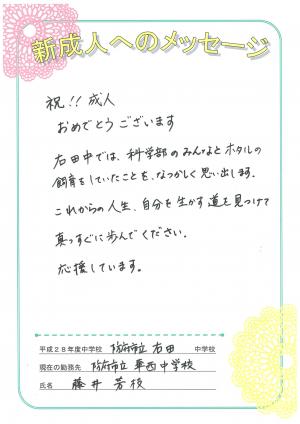 新成人へのメッセージ
祝!! 成人
おめでとうございます
右田中では、科学部のみんなとホタルの
飼育をしていたことを、なつかしく思い出します。
これからの人生、自分を生かす道を見つけて
真っすぐに歩んでください。
応援しています。
平成28年度中学校 防府市立 右田 中学校
現在の勤務先 防府市立 華西中学校
氏名 藤井 芳枝